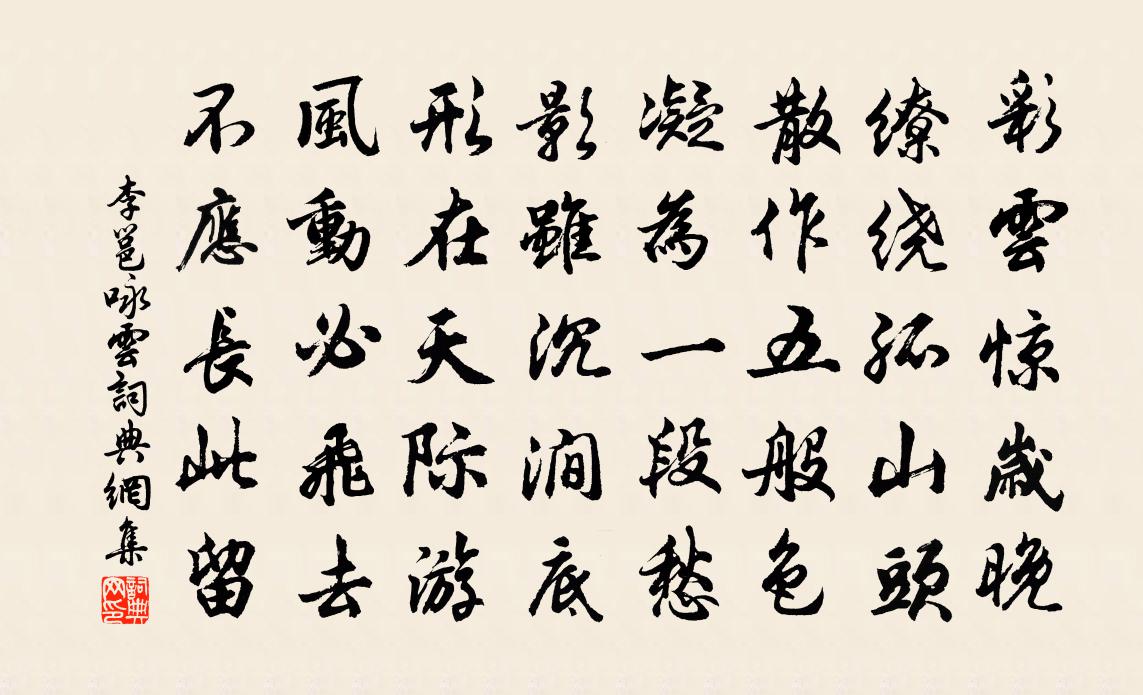 彩雲惊歲晚
缭绕孤山頭
散作五般色
凝為一段愁
影雖沉澗底
形在天际游
風動必飛去
不應長此留
李邕咏雲詞典網集
詞典网印